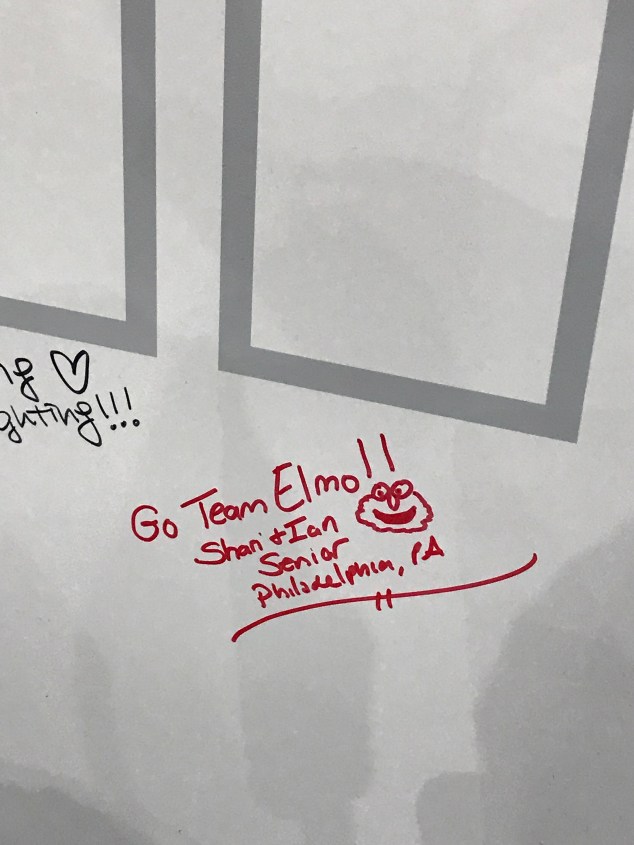 ng ♡
ghting!!!
Go Team Elmo!!
Shari + Ian
Senior
Philadelphia, PA